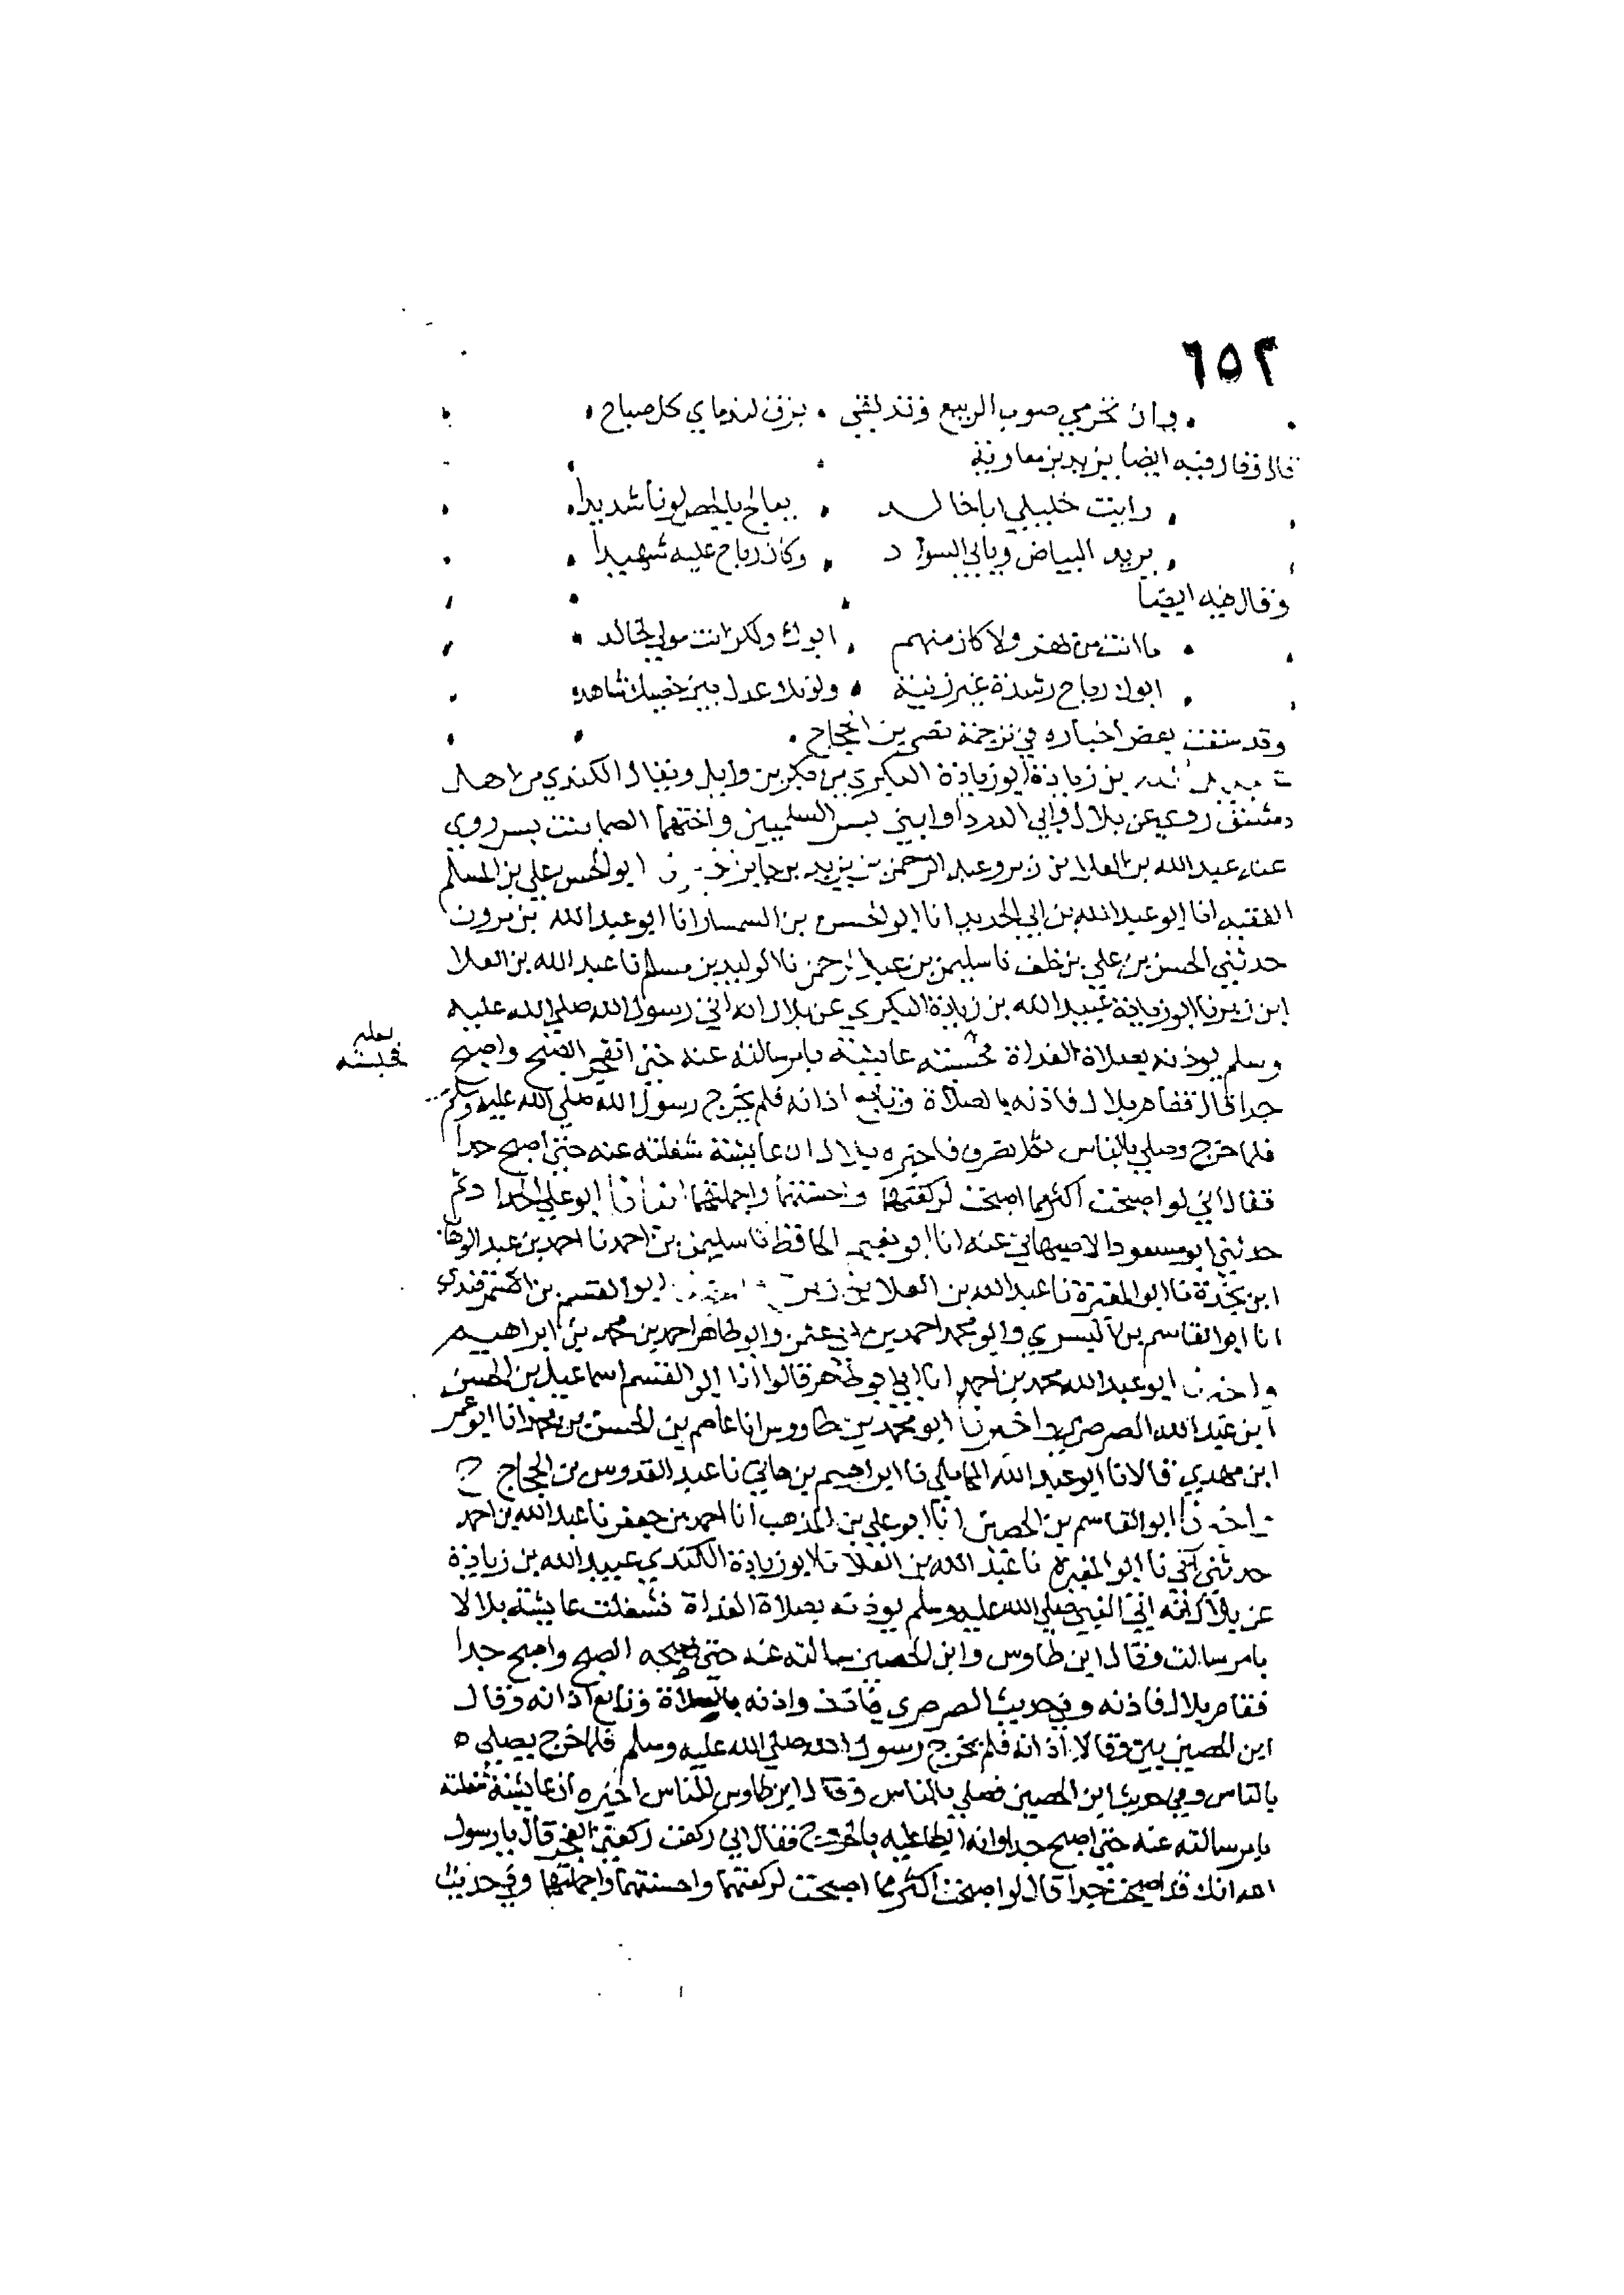 ٦٥٣
وان تحرمي صوب الربيع وتدلفي . بزق لندماي كل صباح
قال وقال فيه ايضا يزيد بن معاوية
رايت خليلي ابا خالد . يعالج بالحص لونا شديدا
يريد البياض ويابى السواد . وكان رباح عليه شهيدا
وقال فيه ايضا
ما انت من فهر ولا كان منهم . ابوك ولكن انت مولى لخالد
ابوك رباح رشدة غير زنية . ولونك عدل بين خصيك شاهد
وقد سقت بعض اخباره في ترجمة نصر بن الحجاج .
بن زيادة ابو زيادة البكري من بكر بن وايل ويقال الكندي من اهل
دمشق روى عن بلال وابي الدرداء وابني بسر السلميين واختهما الصما بنت بسر روى
عنه عبد الله بن العلا بن زبر وعبد الرحمن بن يزيد بن جابر ابو الحسن علي بن المسلم
الفقيه انا ابو عبد الله بن ابي الحديد انا ابو الحسن بن السمسار انا ابو عبد الله بن مرون
حدثني الحسن بن علي بن خلف نا سليمن بن عبد الرحمن نا الوليد بن مسلم نا عبد الله بن العلا
ابن زبر نا ابو زيادة عبيد الله بن زيادة البكري عن بلال انه اتى رسول الله صلى الله عليه
وسلم يوذنه بصلاة الغداة عايشة بامر سالته عنه حتى الصبح واصبح
جدا قال فقام بلال فاذنه بالصلاة وتابع اذانه فلم يخرج رسول الله صلى الله عليه وسلم
فلما خرج وصلى بالناس فاخبره بلال ان عايشة شغلته عنه حتى اصبح جدا
فقال اني لو اصبحت اكثر مما اصبحت لركعتهما واحسنتهما واجملتهما انبانا ابو علي الحداد ثم
حدثني ابو مسعود الاصبهاني عنه انا ابو نعيم الحافظ نا سليمن بن احمد نا احمد بن عبد الوهاب
ابن نجدة نا ابو المغيرة نا عبد الله بن العلا بن زبر ابو القسم بن السمرقندي
انا ابو القاسم بن البسري وابو محمد احمد بن ابي عثمن وابو طاهر احمد بن محمد بن ابراهيم
واخبرنا ابو عبد الله محمد بن احمد انا ابي ابو طاهر قالوا انا ابو القسم اسماعيل بن الحسن
ابن عبد الله الصرصري واخبرنا ابو محمد بن طاووس انا عاصم بن الحسن بن محمد انا ابو عمر
ابن مهدي قالا نا ابو عبد الله المحاملي نا ابراهيم بن هاني نا عبد القدوس بن الحجاج ح
واخبرنا ابو القاسم بن الحصين انا ابو علي بن المذهب انا احمد بن جعفر نا عبد الله بن احمد
حدثني ابي نا ابو المغيرة نا عبد الله بن العلا نا ابو زيادة الكندي عبيد الله بن زيادة
عن بلال انه اتى النبي صلى الله عليه وسلم يوذنه بصلاة الغداة فشغلت عايشة بلالا
بامر سالت وقال ابن طاوس وابن الحصين سالته عنه حتى الصبح واصبح جدا
فقام بلال فاذنه وفي حديث الصرصري واذنه بالصلاة وتابع اذانه وقال
ابن الحصين بين وقالا اذانه فلم يخرج رسول الله صلى الله عليه وسلم فلما خرج يصلي
بالناس وفي حديث ابن الحصين فصلى بالناس وقال ابن طاوس للناس اخبره ان عايشة شغلته
بامر سالته عنه حتى اصبح جدا وانه ابطا عليه بالخروج فقال اني ركعت ركعتي الفجر قال يا رسول
الله انك قد اصبحت جدا قال لو اصبحت اكثر مما اصبحت لركعتهما واحسنتهما واجملتهما وفي حديث